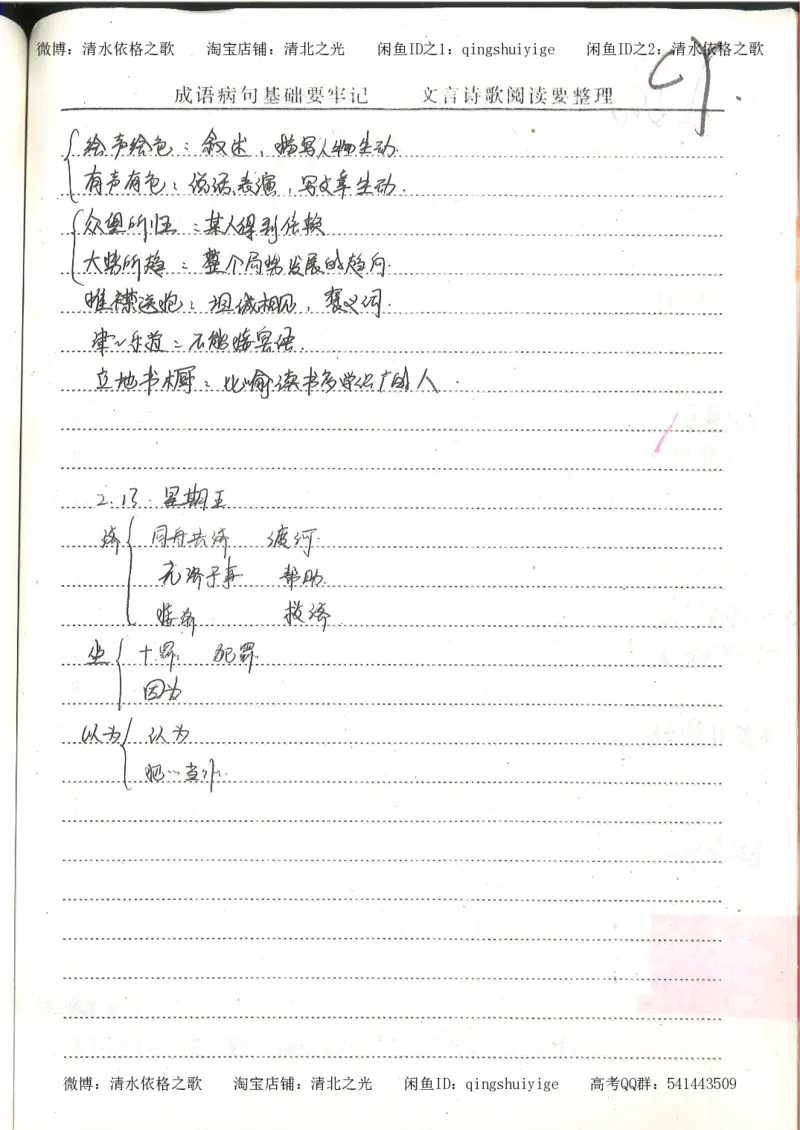 微博：清水依格之歌 淘宝店铺：清北之光 闲鱼ID之1：qingshuiyige 闲鱼ID之2：清水依格之歌
成语病句基础要牢记 文言诗歌阅读要整理
绘声绘色：叙述、描写人物生动.
有声有色：说话,表演,写文章生动.
众望所归：某人得到信赖
大势所趋：整个局势发展的趋向.
推襟送抱：坦诚相见，褒义词.
津~乐道：不能接宾语.
立地书橱：比喻读书多学识广的人.
2.13. 星期五
济 同舟共济 渡河.
无济于事 帮助.
接济 救济.
坐 十罪. 犯罪.
因为
以为 认为
把…当作.
微博：清水依格之歌 淘宝店铺：清北之光 闲鱼ID：qingshuiyige 高考QQ群：541443509